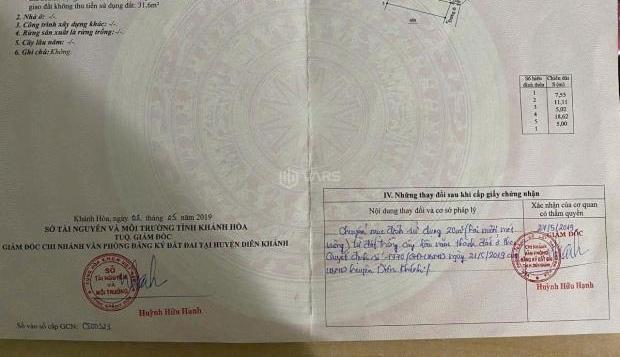 giao đất không thu tiền sử dụng đất: 31.6m²
2. Nhà ở: -/-
3. Công trình xây dựng khác: -/-
4. Rừng sản xuất là rừng trồng: -/-
5. Cây lâu năm: -/-
6. Ghi chú: Không.
Khánh Hòa, ngày 08 tháng 05 năm 2019
SỞ TÀI NGUYÊN VÀ MÔI TRƯỜNG TỈNH KHÁNH HÒA
TUQ. GIÁM ĐỐC
GIÁM ĐỐC CHI NHÁNH VĂN PHÒNG ĐĂNG KÝ ĐẤT ĐAI TẠI HUYỆN DIÊN KHÁNH
SỞ
TÀI NGUYÊN
VÀ
MÔI TRƯỜNG
Huỳnh Hữu Hạnh
Số vào sổ cấp GCN:
VARS
Số hiệu Chiều dài
đỉnh thửa S (m)
1 7,55
2 11,11
3 5,02
4 18,62
5 5,00
1
IV. Những thay đổi sau khi cấp giấy chứng nhận
Nội dung thay đổi và cơ sở pháp lý
Xác nhận của cơ quan
có thẩm quyền
Chuyển mục đích sử dụng 20m² (Hai mươi mét
vuông) từ đất trồng cây lâu năm thành đất ở theo
Quyết định số ngày 21/5/2019 của
UBND huyện Diên Khánh
24/5/2019
GIÁM ĐỐC
CHI NHÁNH
VĂN PHÒNG
ĐĂNG KÝ ĐẤT ĐAI
Huỳnh Hữu Hạnh